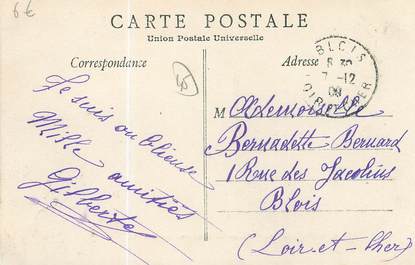 6€
CARTE POSTALE
Union Postale Universelle
Correspondance
Adresse
BLOIS
7-12
09
LOIR-ET-CHER
50
Je suis oublieuse
Mille amitiés
Gilberte
Mademoiselle
Bernadette Bernard
1 Rue des Jacobins
Blois
(Loir-et-Cher)